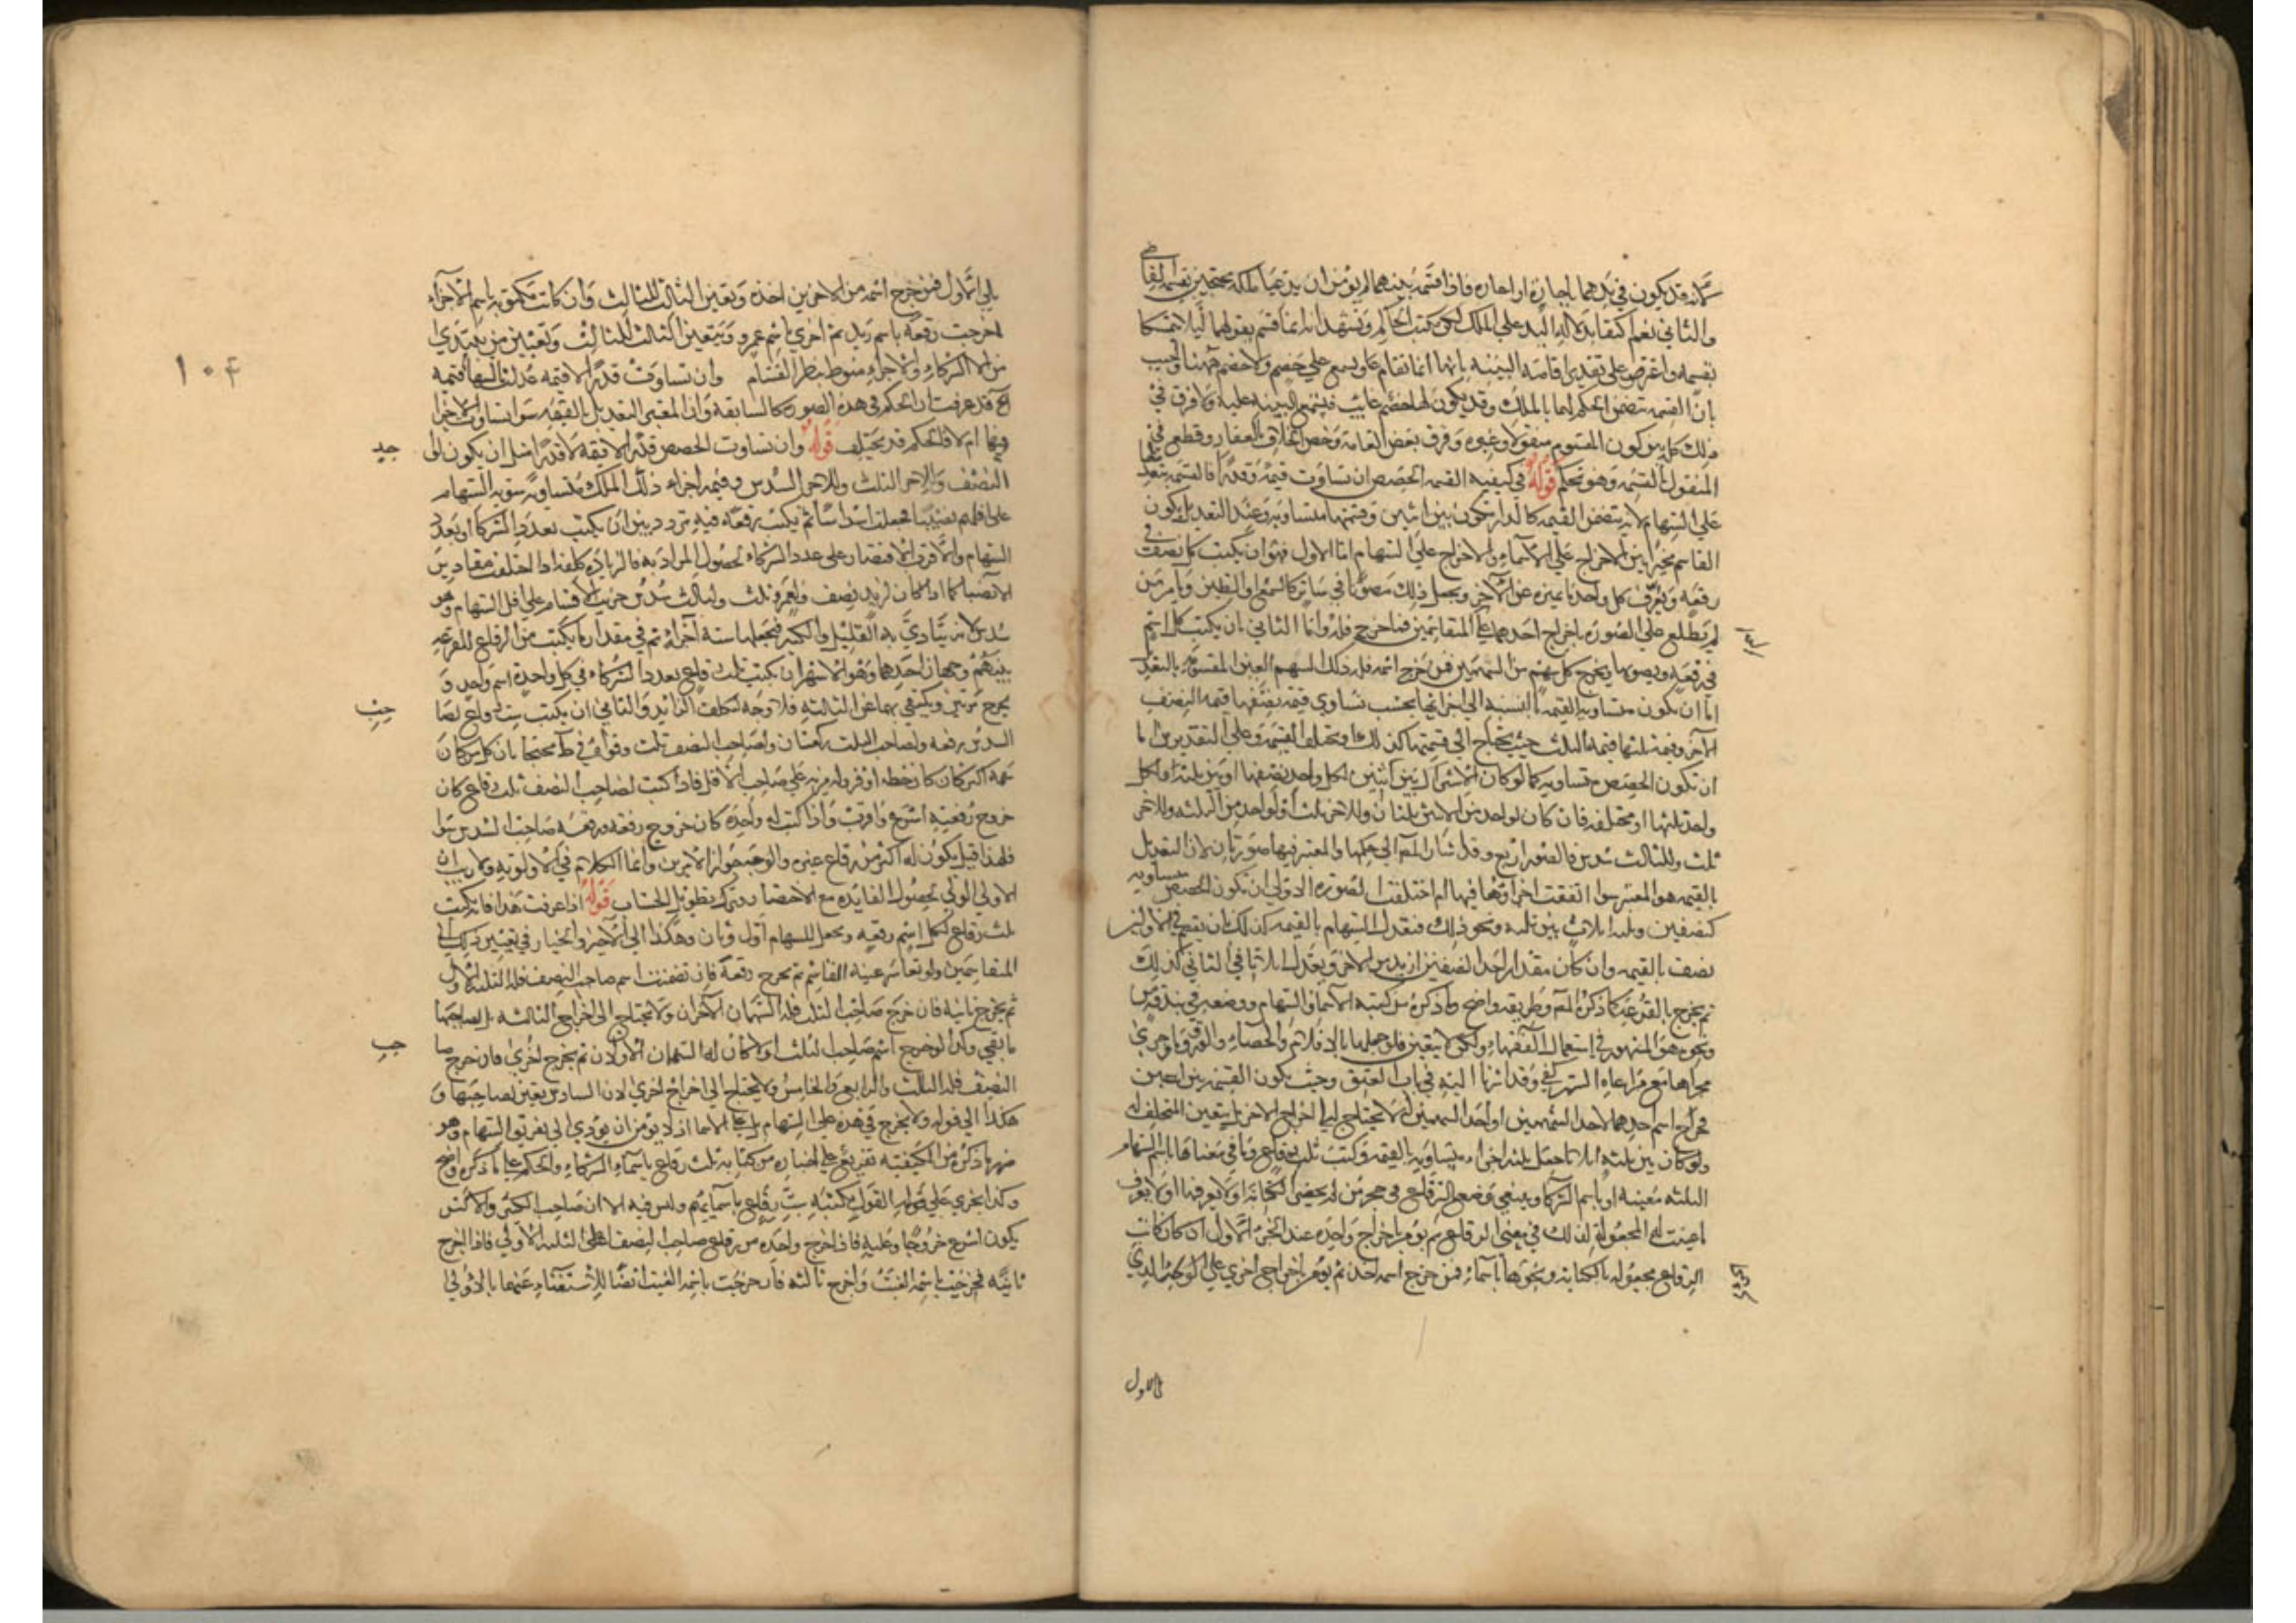 لانه قد يكون في يدهما باجارة او اعارة فاذا قسمه بينهما لم يؤمن ان يدعيا ملكه محتجين بقسمة القاضي
والثاني نعم اكتفا بدلالة اليد على الملك لكن يكتب الحاكم ويشهد انه انما قسم بقولهما ليلا يتمسكا
بقسمه واعترض على تقدير اقامة البينة بانها انما تقام على ويسمع على خصم ولا خصم ههنا واجيب
بان القسمة تتضمن الحكم لهما بالملك وقد يكون لهما خصم غايب فيسمع البينة عليه ولا فرق في
ذلك كله بين كون المقسوم منقولا وغيره وفرق بعض العامة وخص الخلاف بالعقار وقطع في
المنقول بالقسمة وهو تحكم قوله في كيفية القسمة الحصص ان تساوت قيمة وقدرا فالقسمة بتعديلها
على السهام لانه يتضمن القيمة كالدار تكون بين اثنين وقيمتها متساوية وعند التعديل يكون
القاسم مخيرا بين الاخراج على الاسماء والاخراج على السهام اما الاول فهو ان يكتب كل نصف في
رقعة ويعرف كل واحد بما يميزه عن الآخر ويجعل ذلك مصونا في ساتر كالشمع او الطين ويامر من
لم يطلع على الصورة باخراج احدهما على اسم احد المتقاسمين فما خرج فله واما الثاني بان يكتب كل اسم
في رقعة ويصونها ويخرج كل سهم من السهمين فمن خرج اسمه فله ذلك السهم العين المقسومة بالتعديل
اما ان يكون متساوية القيمة بالنسبة الى اجزائها بحسب تساوي قيمة نصفها قيمة النصف
الآخر وقيمة ثلثها قيمة الثلث حيث يحتاج الى قسمتها كذلك او مختلف القيمة وعلى التقديرين اما
ان تكون الحصص متساوية كما لو كان الاشتراك بين اثنين لكل واحد نصفها او بين ثلثة لكل
واحد ثلثها او مختلفة فان كان لواحد من الاثنين ثلثان وللاخر ثلث او لواحد من الثلثة وللاخر
ثلث وللثالث سدس فالصور اربع وقد اشار المص الى حكمها والمعتبر فيها صورتان لان التعديل
بالقيمة هو المعتبر سوا اتفقت اجزاؤها فيها ام اختلفت الصورة الاولى ان تكون الحصص متساوية
كنصفين وثلثة اثلاث بين ثلثة ونحو ذلك فتعدل السهام بالقيمة كذلك بان يقسم في الاول
نصف بالقيمة وان كان مقدار احد النصفين ازيد من الاخر ويعدل اثلاثا في الثاني كذلك
ثم يخرج بالقرعة كما ذكره المص وطريقه واضح وما ذكره من كتبة الاسماء والسهام ووضعه في بندقة
ونحوه هو المشهور في استعمال الفقهاء ولكن لا يتعين فلو جعلها بالاقلام والحصاء والورق وما جرى
مجراها مع مراعاة الستر كفى وقد اشرنا اليه في باب العتق وحيث يكون القسمة بين اثنين
فخراج اسم احدهما لاحد السهمين او احد السهمين له لا يحتاج الى اخراج الاخر بل يتعين المتخلف له
ولو كان بين ثلثة اثلاثا جعل ثلثة اجزاء متساوية بالقيمة وكتب ثلث رقاع وما في معناها باسم السهام
الثلثة معينة او باسم الشركاء وينبغي وضع الرقاع في حجر من لم يحضر الكتابة ولا يعرفها او لا يعرف
الرقاع مجعولة بالكتابة ونحوها باسماء فمن خرج اسمه اخذ ثم يؤمر باخراج اخرى على الجزء الذي
في الاول
١٠٤
يلي الاول فمن خرج اسمه من الاخرين اخذه وتعين الثالث للثالث وان كانت مكتوبة باسم الاجزاء
اخرجت رقعة باسم زيد ثم اخرى باسم عمرو وتتعين الثالث للثالث وتعيين من يبتدي
من الشركاء والاجزاء منوط بنظر القسام وان تساوت قدرا لا قيمة عدلت السهام قيمة
الخ قد عرفت ان الحكم في هذه الصورة كالسابقة وان المعتبر التعديل بالقيمة سوا تساوت الاجزا
فيها ام لا فالحكم قد يختلف قوله وان تساوت الحصص قدرا لا قيمة لا قدرا مثل ان يكون لواحد
النصف وللاخر الثلث وللاخر السدس وقيمة اجزاء ذلك الملك متساوية سويت السهام
على اقلهم نصيبا فجعلت اسداسا ثم يكتب رقعة فيه تردد بين ان يكتب بعدد الشركاء او بعدد
السهام والاقرب الاقتصار على عدد الشركاء لحصول المراد به فالزيادة كلفة اذا اختلفت مقادير
الانصباء كما اذا كان لزيد نصف ولعمرو ثلث ولثالث سدس جزيت الاقسام على اقل السهام وهو
سدس لانه يتادي به القليل والكثير فيجعلها ستة اجزاء ثم في مقدار ما يكتب من الرقاع للقرعة
بينهم وجهان احدهما وهو الاشهر ان يكتب ثلث رقاع بعدد الشركاء في كل واحدة اسم واحد و
يخرج مرتين ويكتفي بهما عن الثالثة فلا وجه لتكلف الزايد والثاني ان يكتب ست رقاع لصا
السدس رقعة ولصاحب الثلث رقعتان ولصاحب النصف ثلث وقواه في ط محتجا بان كل من كان
سهمه اكثر كان حظه اوفر وله مزية على صاحب الاقل فاذا كتبت لصاحب النصف ثلث رقاع كان
خروج رقعته اسرع واقرب واذا كتب له واحدة كان خروج رقعته ورقعة صاحب السدس سوا
فلهذا قيل يكون له اكثر من رقاع غيره والوجه جواز الامرين وانما الكلام في الاولوية ولا ريب ان
الاولى الاول لحصول الفايدة مع الاختصار وترك تطويل الحساب قوله اذا عرفت هذا فانه يكتب
ثلث رقاع لكل اسم رقعة ويجعل للسهام اول وثان وهكذا الى الاخير والخيار في تعيين ذلك الى
المتقاسمين ولو تعاسر عينه القاسم ثم يخرج رقعة فان تضمنت اسم صاحب النصف فله الثلثة الاول
ثم يخرج ثانية فان خرج صاحب الثلث فله السهمان الآخران ولا يحتاج الى اخراج الثالثة بل لصاحبها
ما بقي وكذا لو خرج اسم صاحب الثلث اولا كان له السهمان الاولان ثم يخرج اخرى فان خرج صا
النصف فله الثالث والرابع والخامس ولا يحتاج الى اخراج اخرى لان السادس تعين لصاحبها و
هكذا الى قوله ولا يخرج في هذه على السهام بل على الاسما اذ لا يؤمن ان يؤدي الى تفرق السهام وهو
ضرر ما ذكره من الكيفية تفريع على اختياره من كتابة ثلث رقاع باسماء الشركاء والحكم على ما ذكره واضح
وكذا يجري على القول بكتبه ست رقاع باسمائهم وليس فيه الا ان صاحب الكثير والاكثر
يكون اسرع خروجا وعليه فاذا خرج واحدة من رقاع صاحب النصف اعطى الثلثة الاولى فاذا اخرج
ثانية فخرجت باسمه الغيت واخرج ثالثة فان خرجت باسمه الغيت ايضا للاستغناء عنها بالاولى